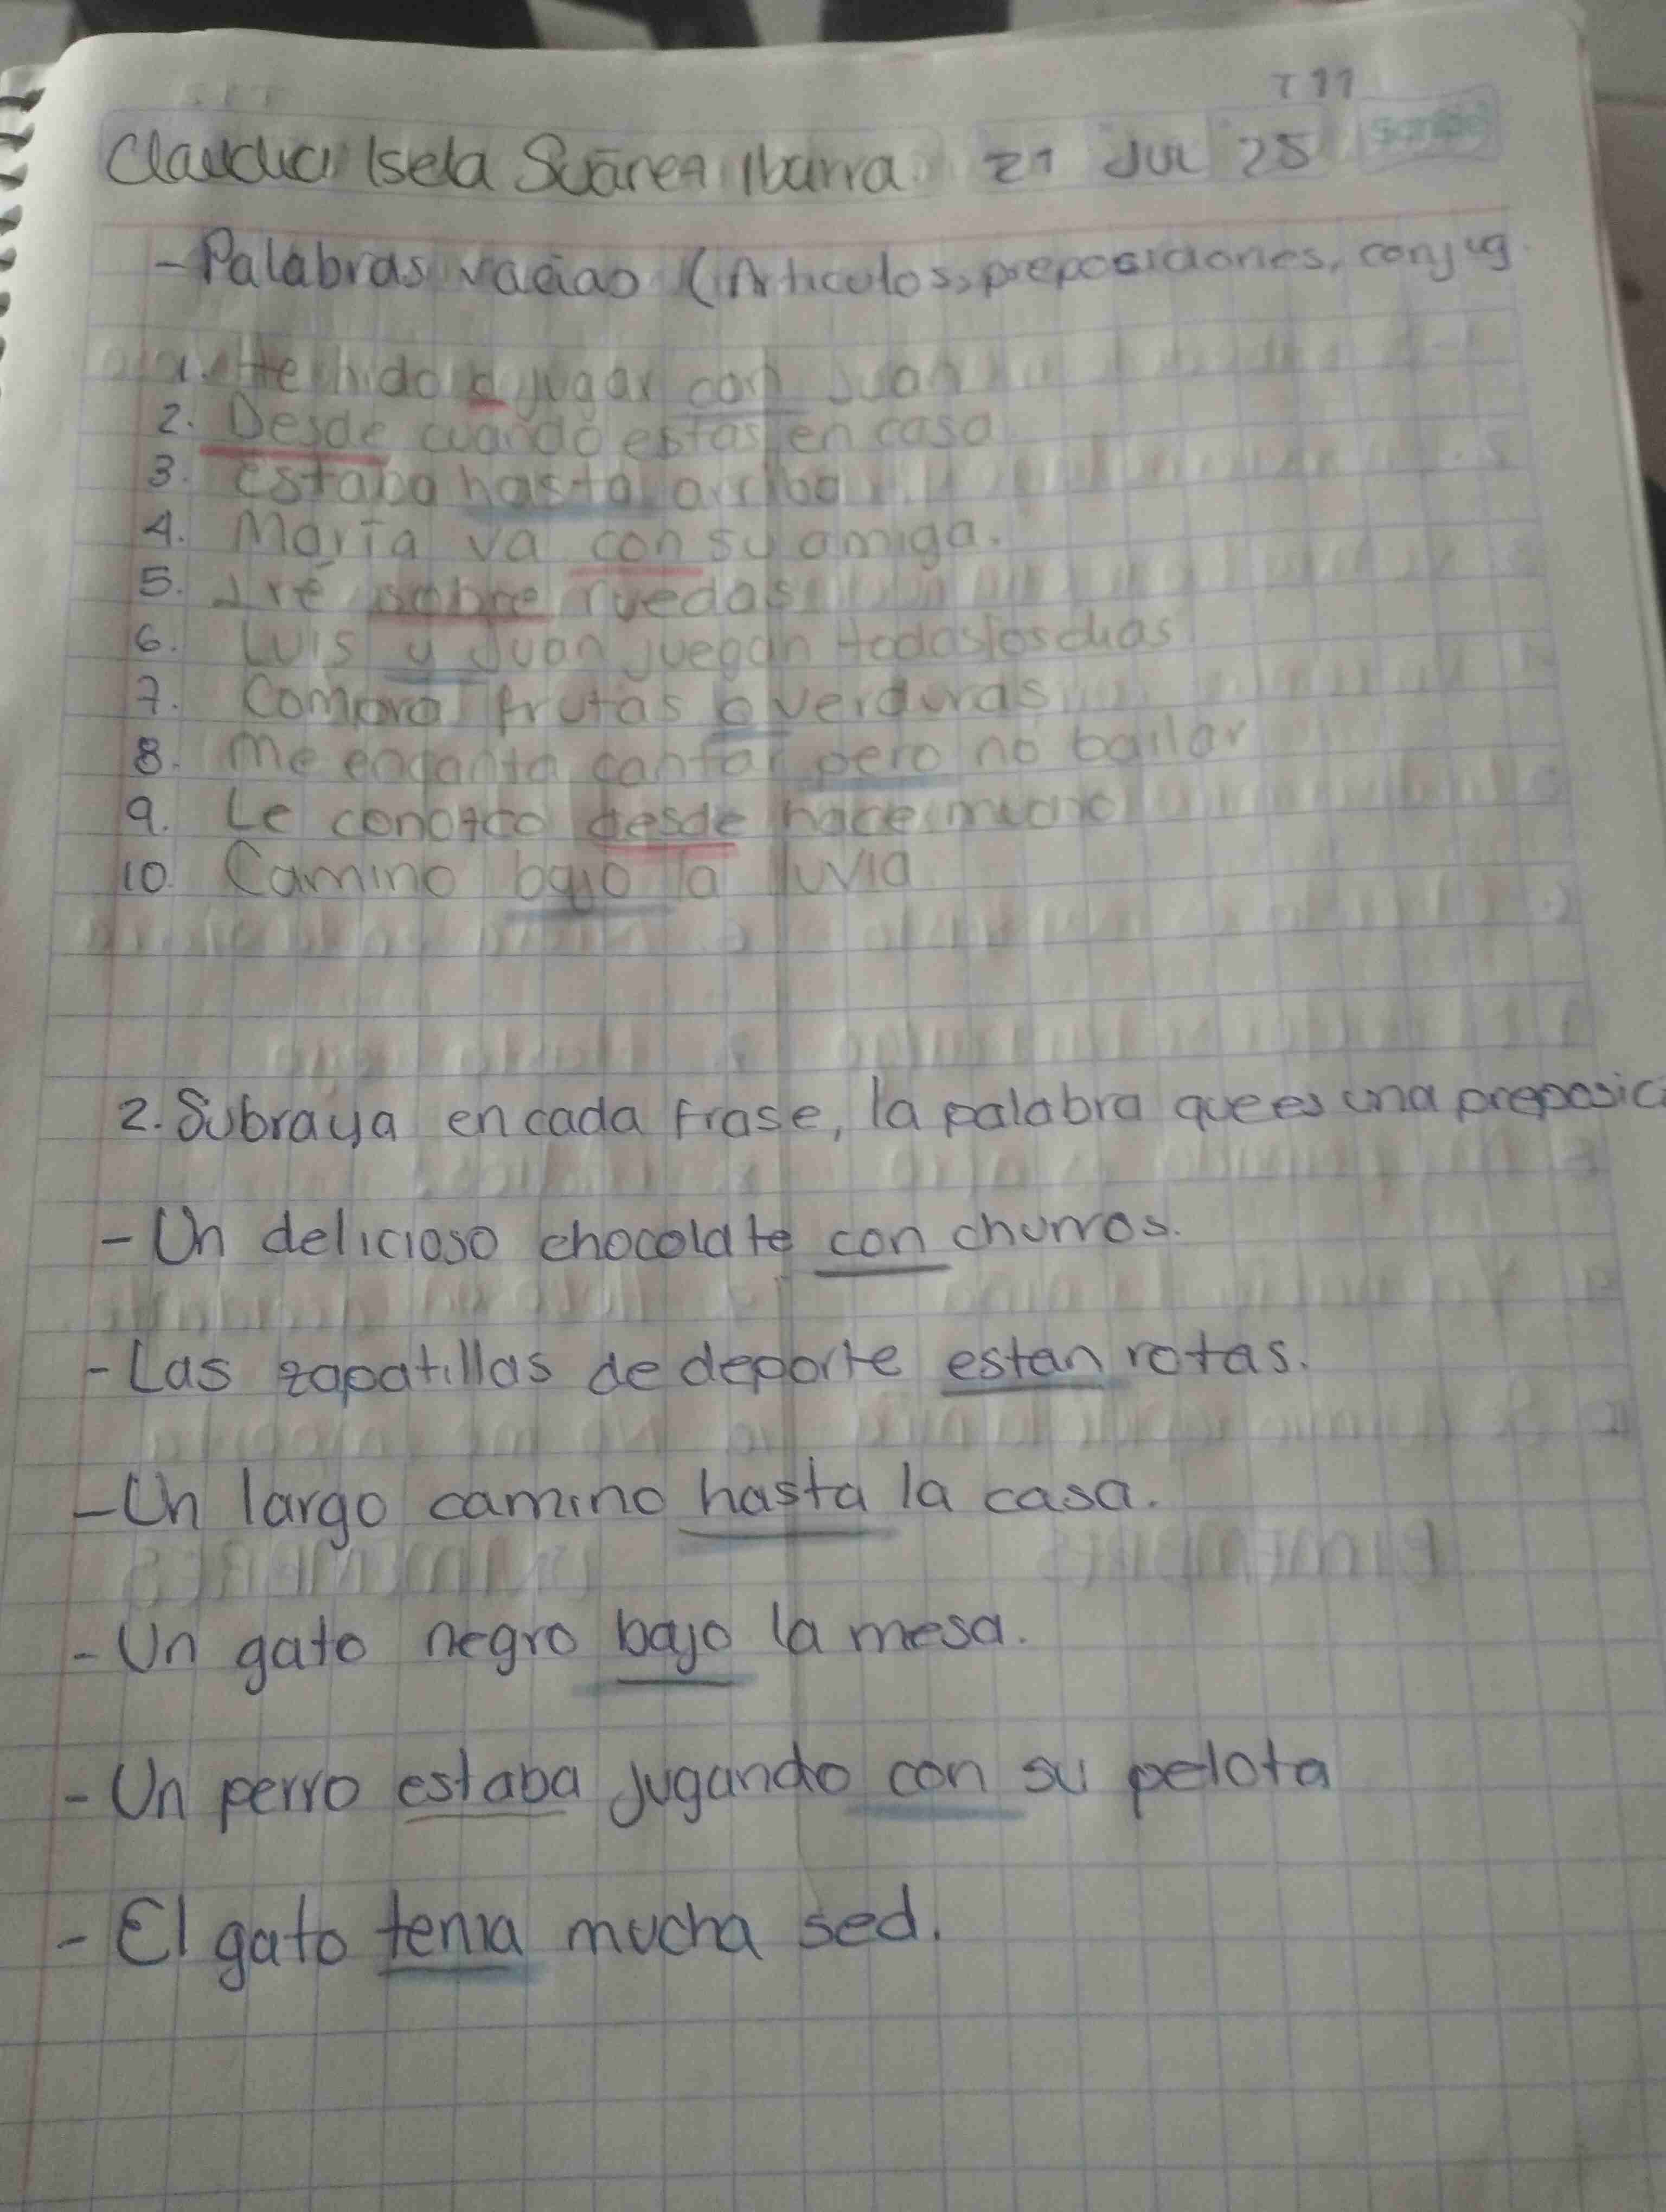 T 11
Claudia Isela Suárez Ibarra 21 Jul 25 Scribe
- Palabras vacias (Articulos, preposiciones, conjug.
1. He hido a jugar con Juan
2. Desde cuando estas en casa
3. estaba hasta arriba
4. María va con su amiga.
5. Iré sobre ruedas
6. Luis y Juan juegan todos los dias
7. Compra frutas o verduras
8. Me encanta cantar pero no bailar
9. Le conozco desde hace mucho
10. Camino bajo la lluvia
2. Subraya en cada frase, la palabra que es una preposic
- Un delicioso chocolate con churros.
- Las zapatillas de deporte estan rotas.
- Un largo camino hasta la casa.
- Un gato negro bajo la mesa.
- Un perro estaba jugando con su pelota
- El gato tenia mucha sed.